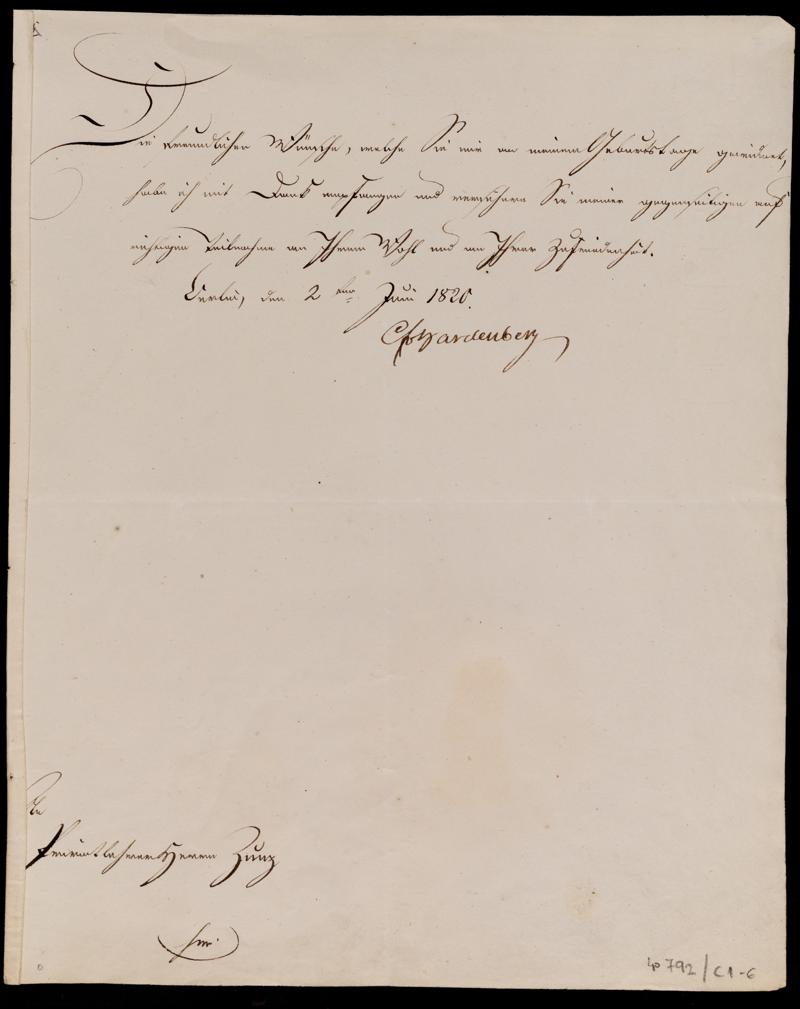 Die freundlichen Wünsche, welche Sie mir an meinem Geburtstage gewidmet,
habe ich mit Dank empfangen und versichere Sie meiner gegenseitigen auf
richtigen Teilnahme an Ihrem Wohl und an Ihrer Zufriedenheit.
Berlin, den 2 ten Juni 1820.
CFvHardenberg
An
Privatlehrer Herrn Zunz
hier.
4o 792/C1-6